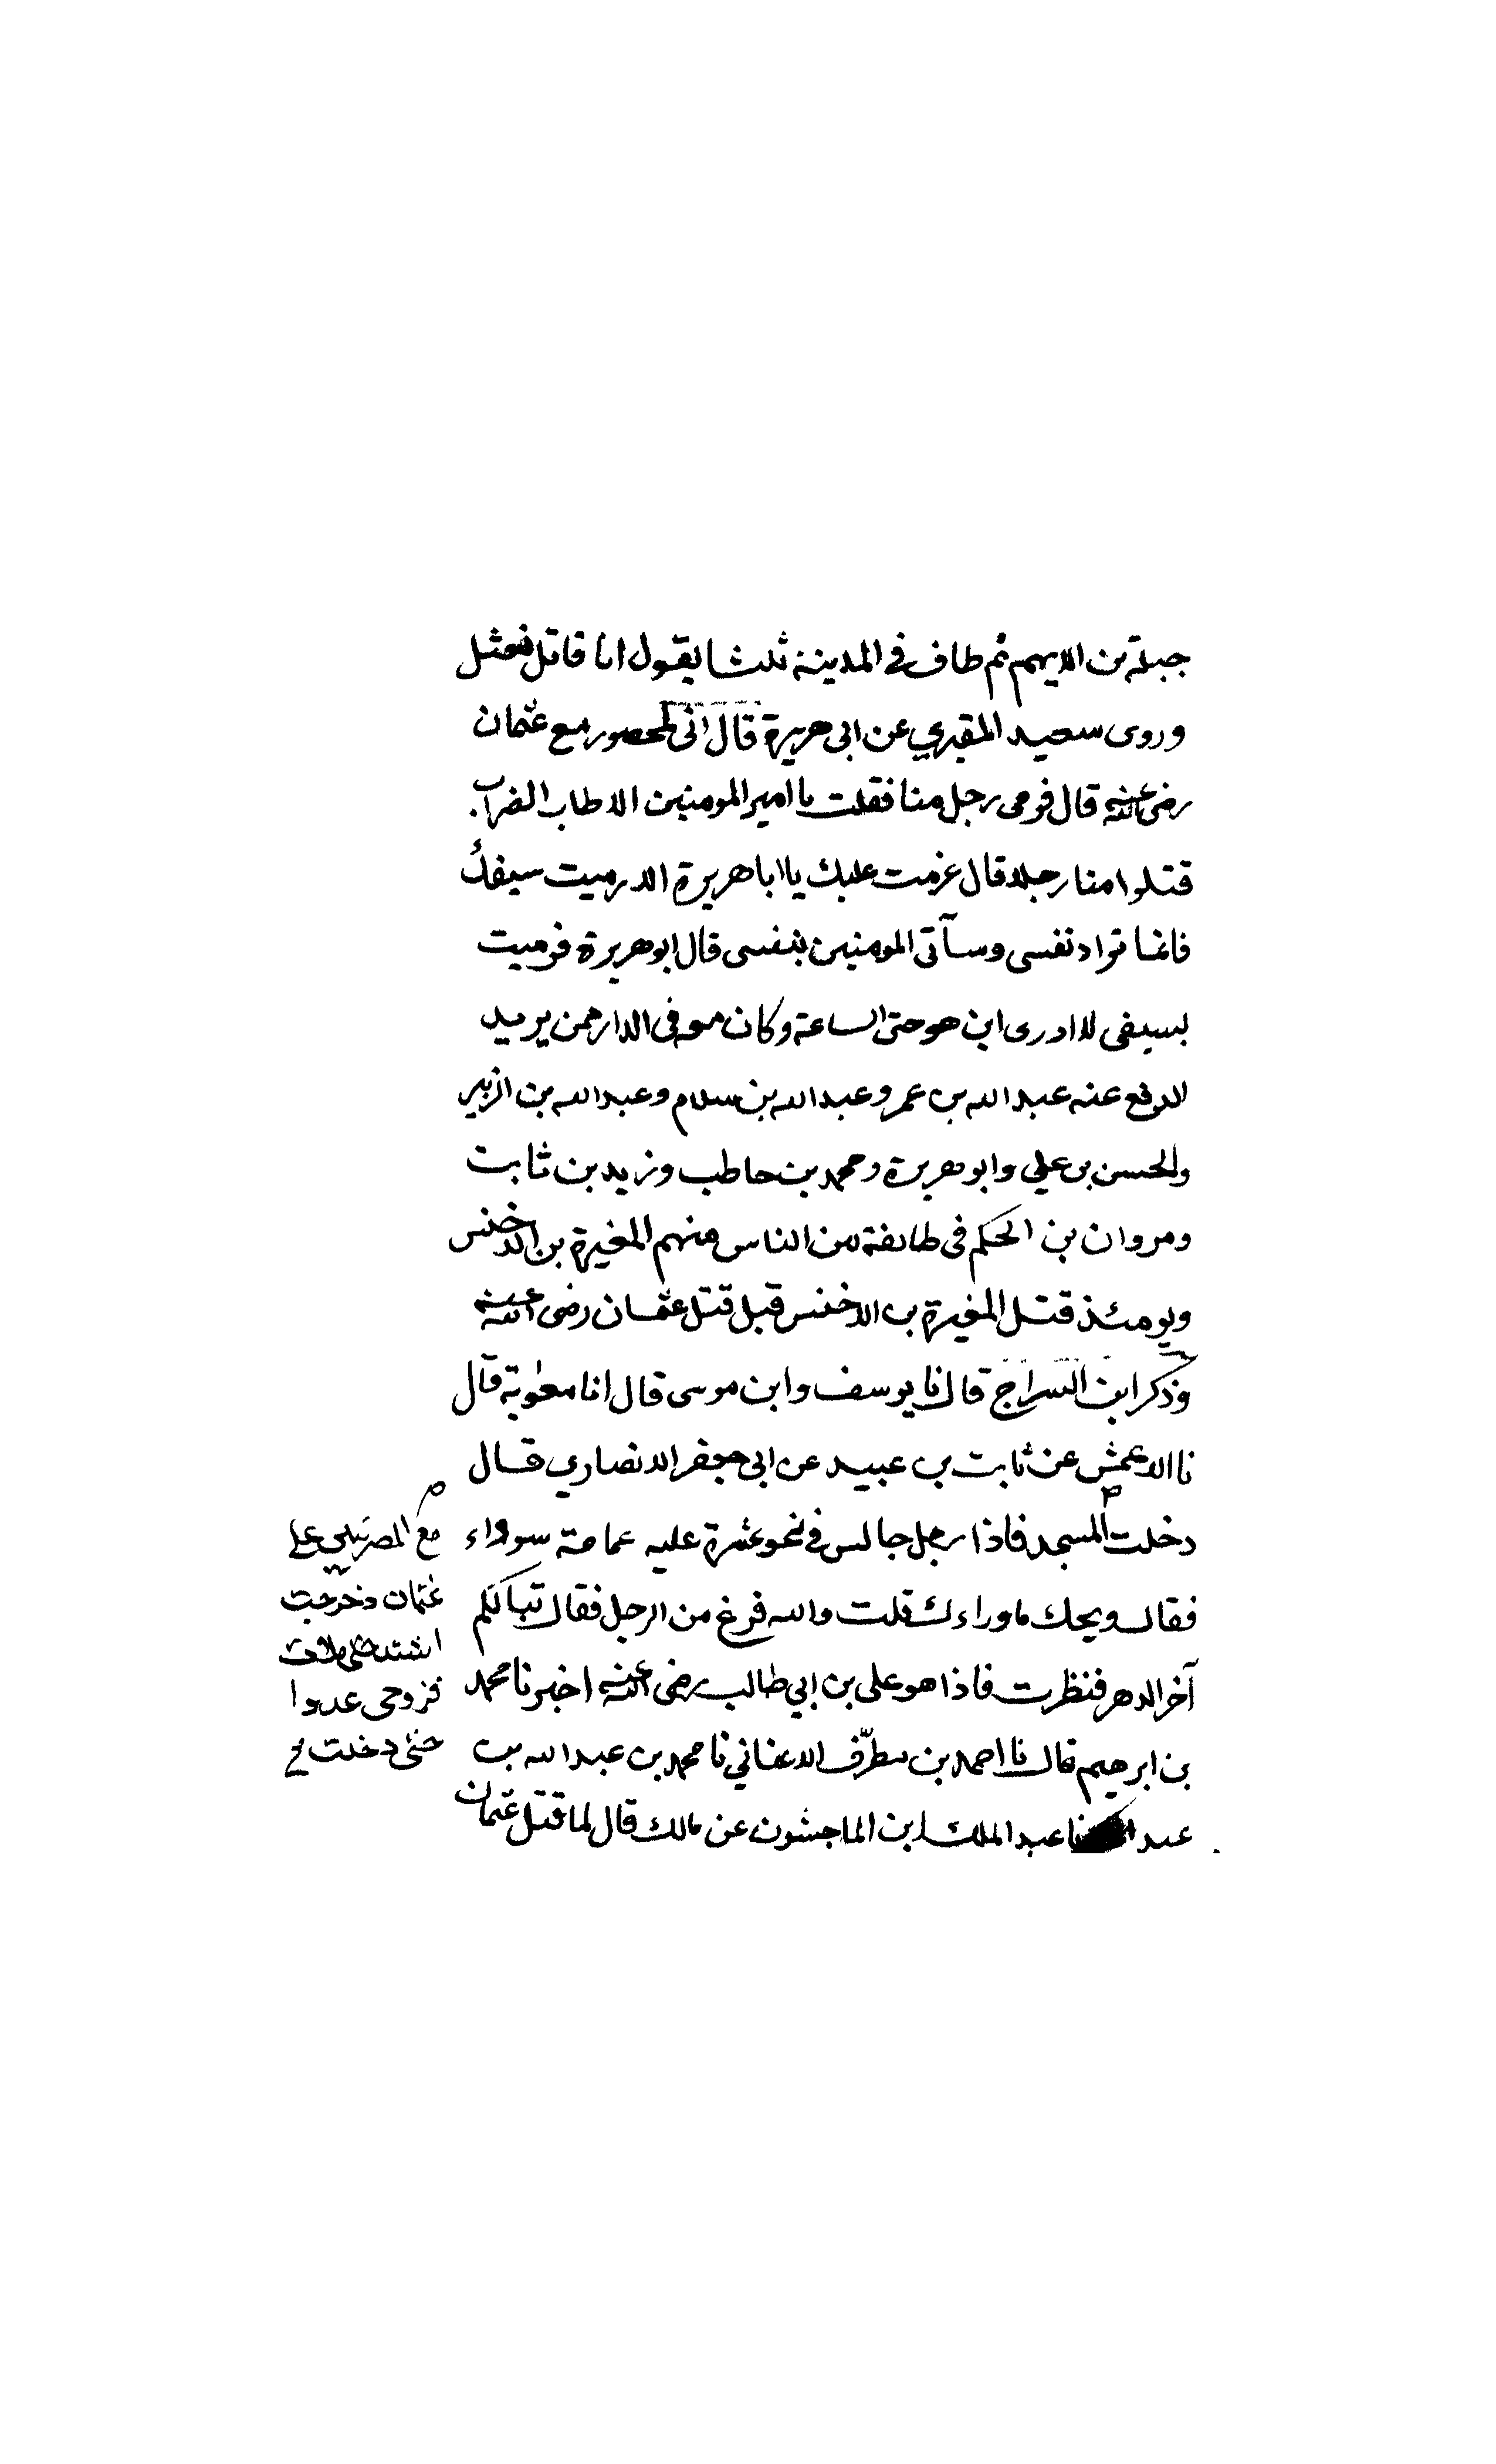 جبلة بن الايهم ثم طاف في المدينة ثلثا يقول انا قاتل نعثل
وروى سعيد المقبري عن ابى هريرة قال انى لمحصور مع عثمان
رضى الله عنه قال فرمى رجل منا فقلت يا امير المومنين الان طاب الضراب
قتلوا منا رجلا قال عزمت عليك يا ابا هريرة الا رميت سيفك
فانما تراد نفسى وسآتى المومنين بنفسى قال ابو هريرة فرميت
بسيفى لا ادرى اين هو حتى الساعة وكان معه فى الدار ممن يريد
الدفع عنه عبد الله بن عمر وعبد الله بن سلام وعبد الله بن الزبير
والحسن بن علي وابو هريرة ومحمد بن حاطب وزيد بن ثابت
ومروان بن الحكم فى طائفة من الناس منهم المغيرة بن الاخنس
ويومئذ قتل المغيرة بن الاخنس قبل قتل عثمان رضى الله عنه
وذكر ابن السراج قال نا يوسف وابن موسى قال انا معوية قال
نا الاعمش عن ثابت بن عبيد عن ابى جعفر الانصاري قال
دخلت المسجد فاذا رجل جالس في نحو عشرة عليه عمامة سوداء
فقال ويحك ما وراءك قلت والله فرغ من الرجل فقال تبا لكم
آخر الدهر فنظرت فاذا هو على بن ابي طالب رضى الله عنه اخبرنا محمد
بن ابرهيم قال نا احمد بن مطرّف نا الاعناقي نا محمد بن عبد الله بن
عبد نا عبد الملك ابن الماجشون عن مالك قال لما قتل عثمان
مع المصريين على
عثمان خرجت
اشتد حتى ملأت
فروجى عدوا
حتى دخلت